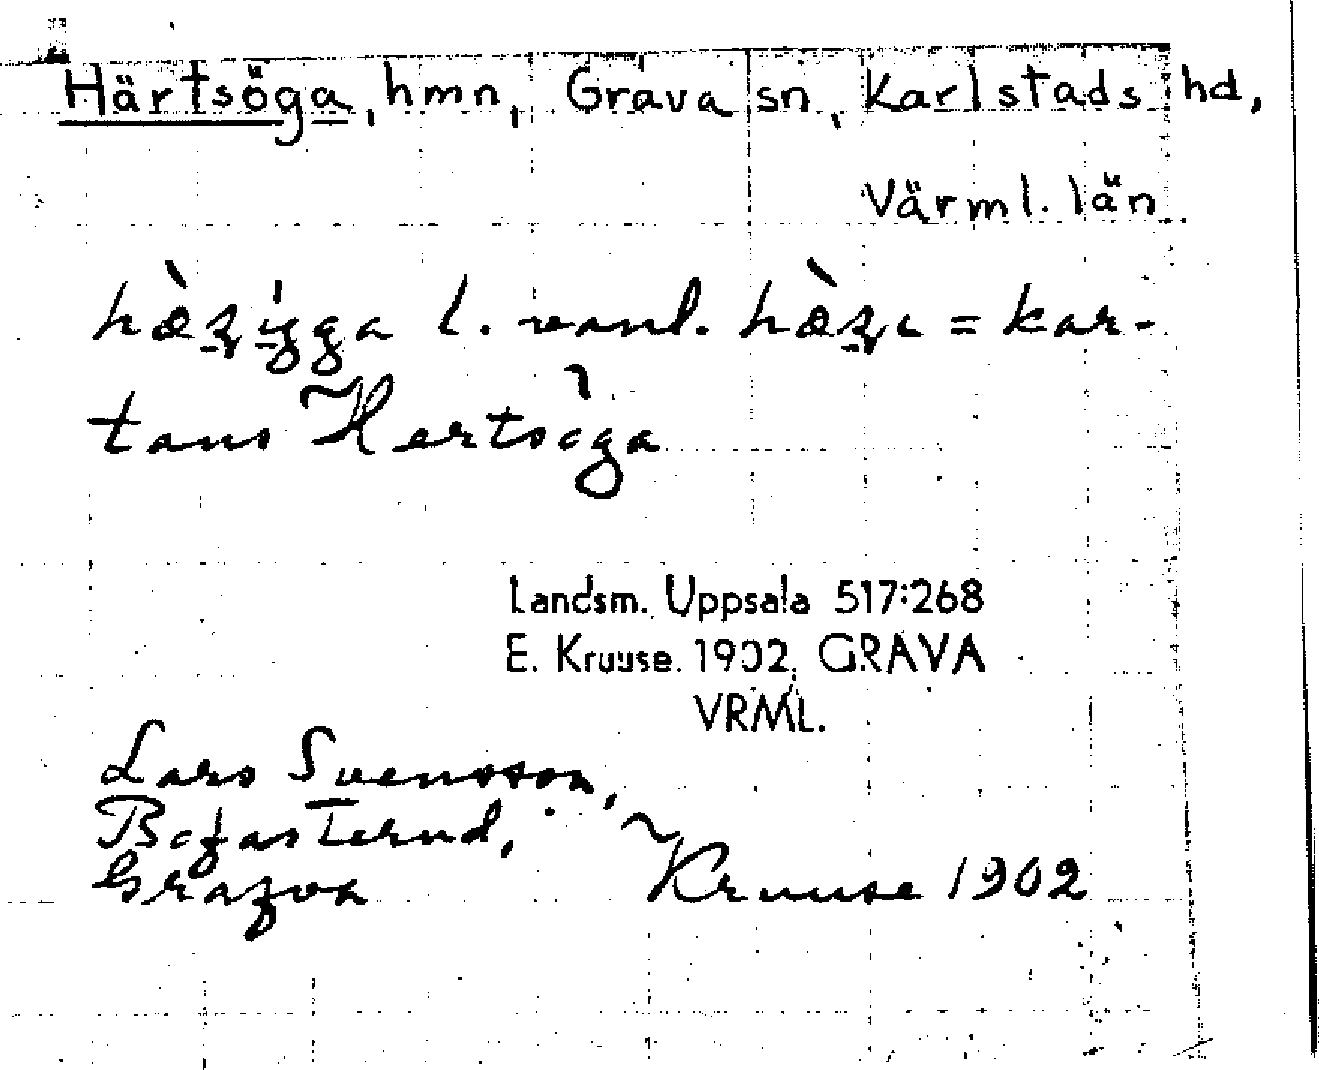 Härtsöga, hmn, Grava sn, Karlstads hd,
Värml. län
l. vanl. = kar-
tans Hertsöga
Landsm. Uppsala 517:268
E. Kruuse. 1902. GRAVA
VRML.
Lars Svensson,
Grafva Kruuse 1902